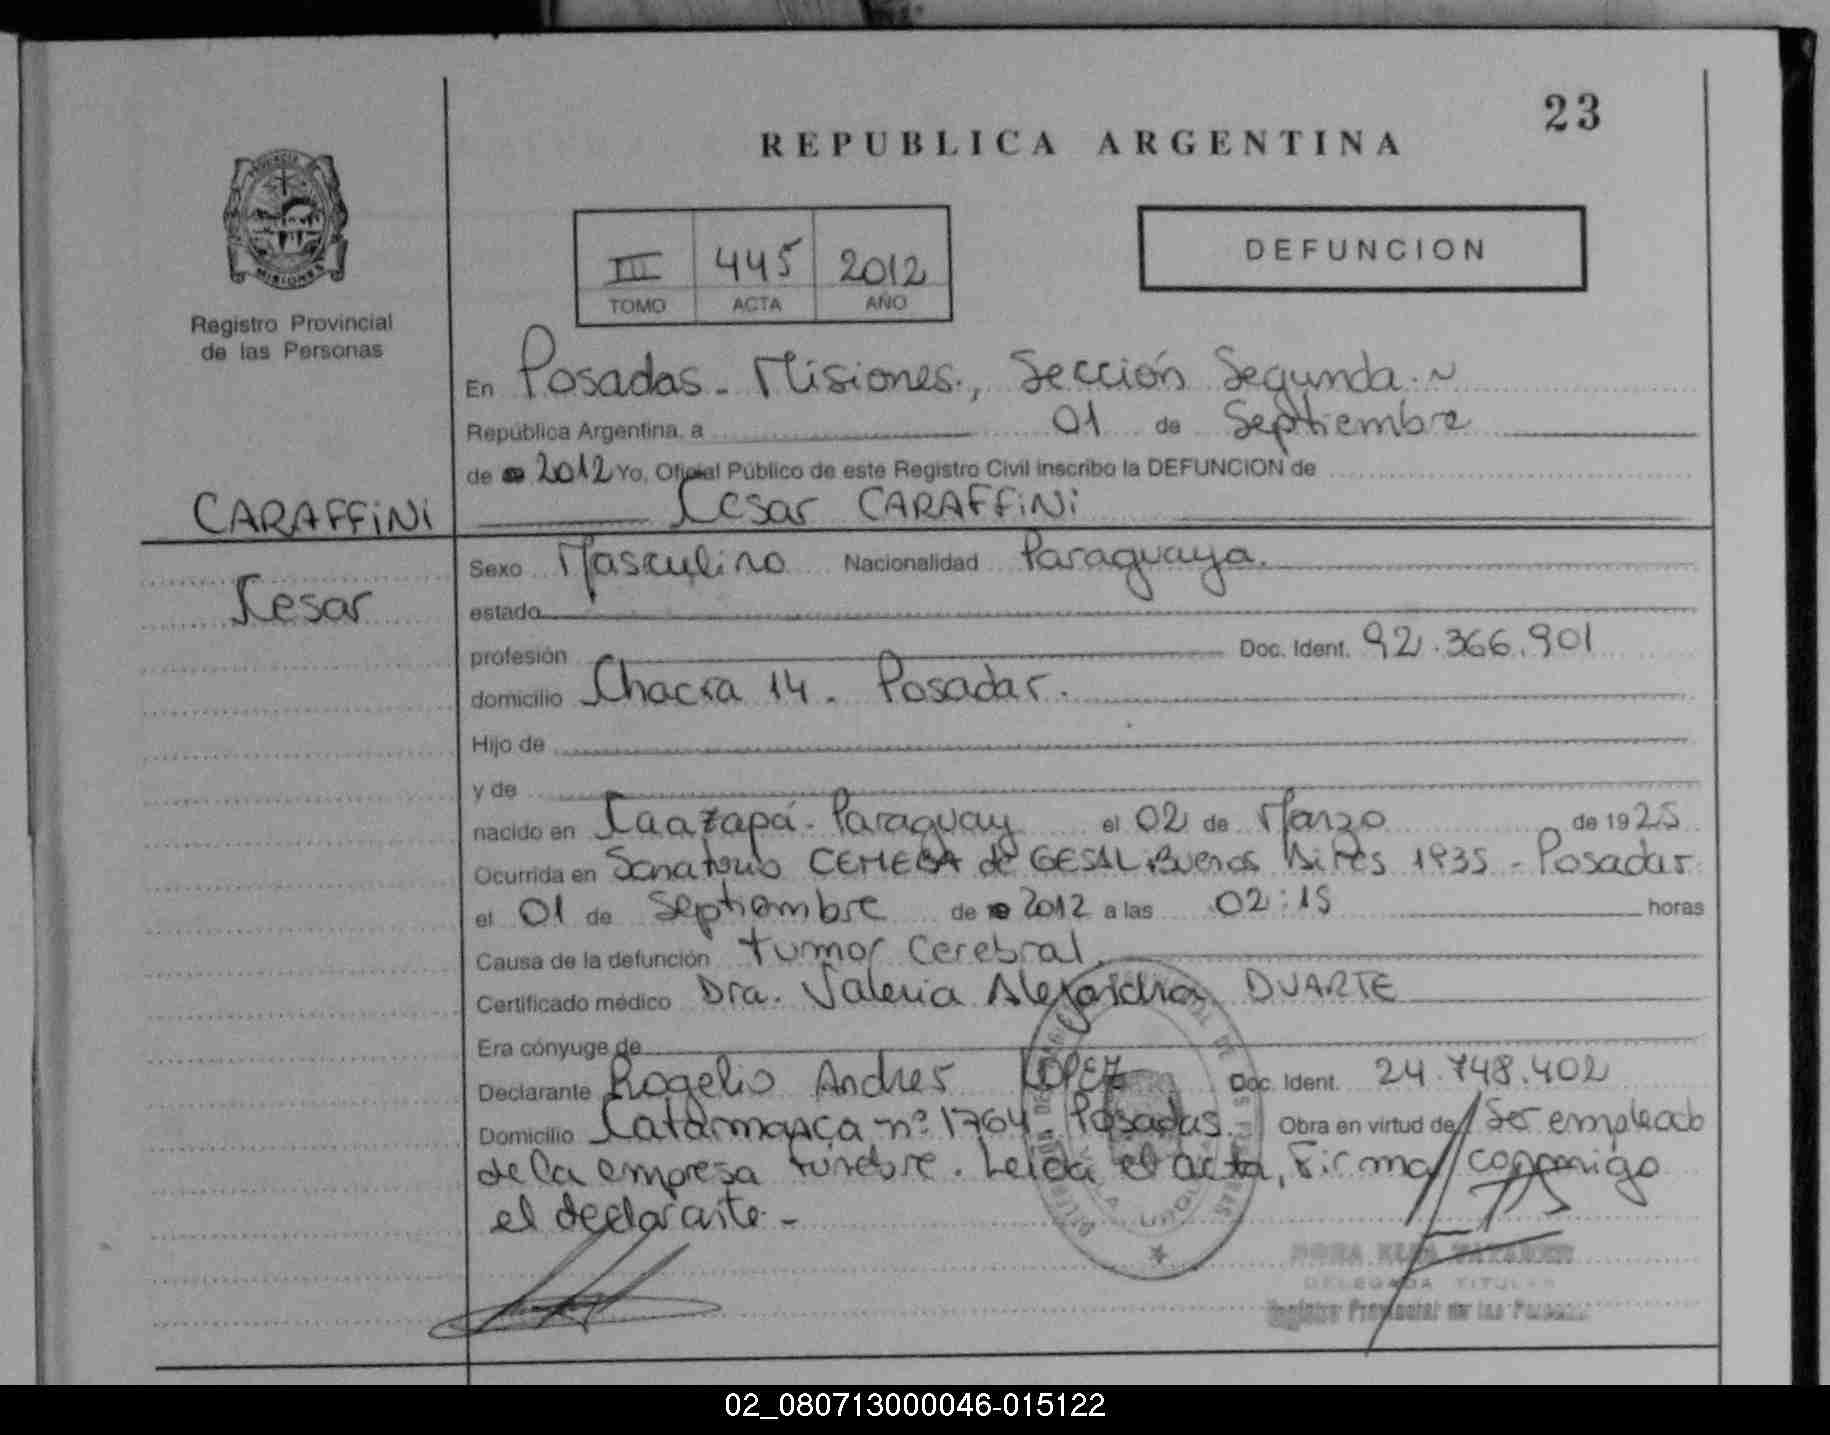 23
REPUBLICA ARGENTINA
MISIONES
Registro Provincial
de las Personas
III 445 2012
TOMO ACTA AÑO
DEFUNCION
En Posadas - Misiones., Sección Segunda.~
República Argentina, a 01 de Septiembre
de 2012 Yo, Oficial Público de este Registro Civil inscribo la DEFUNCION de
CARAFFiNi
Cesar CARAFFiNi
Cesar
Sexo Masculino Nacionalidad Paraguaya.
estado
profesión Doc. Ident. 92.366.901
domicilio Chacra 14. Posadas.
Hijo de
y de
nacido en Caazapá - Paraguay el 02 de Marzo de 1925
Ocurrida en Sanatorio CEMEBA de GESAL. Buenos Aires 1935 - Posadas
el 01 de Septiembre de 2012 a las 02:15 horas
Causa de la defunción tumor cerebral.
Certificado médico Dra. Valeria Alejandra DUARTE
Era cónyuge de
Declarante Rogelio Andres LOPEZ Doc. Ident. 24.748.402
Domicilio Catamarca nº 1764. Posadas. Obra en virtud de Ser empleado
de la empresa fúnebre. Leída el acta, Firma conmigo
el declarante.-
DELEGADA TITULAR
Registro Provincial de las Personas
02_080713000046-015122